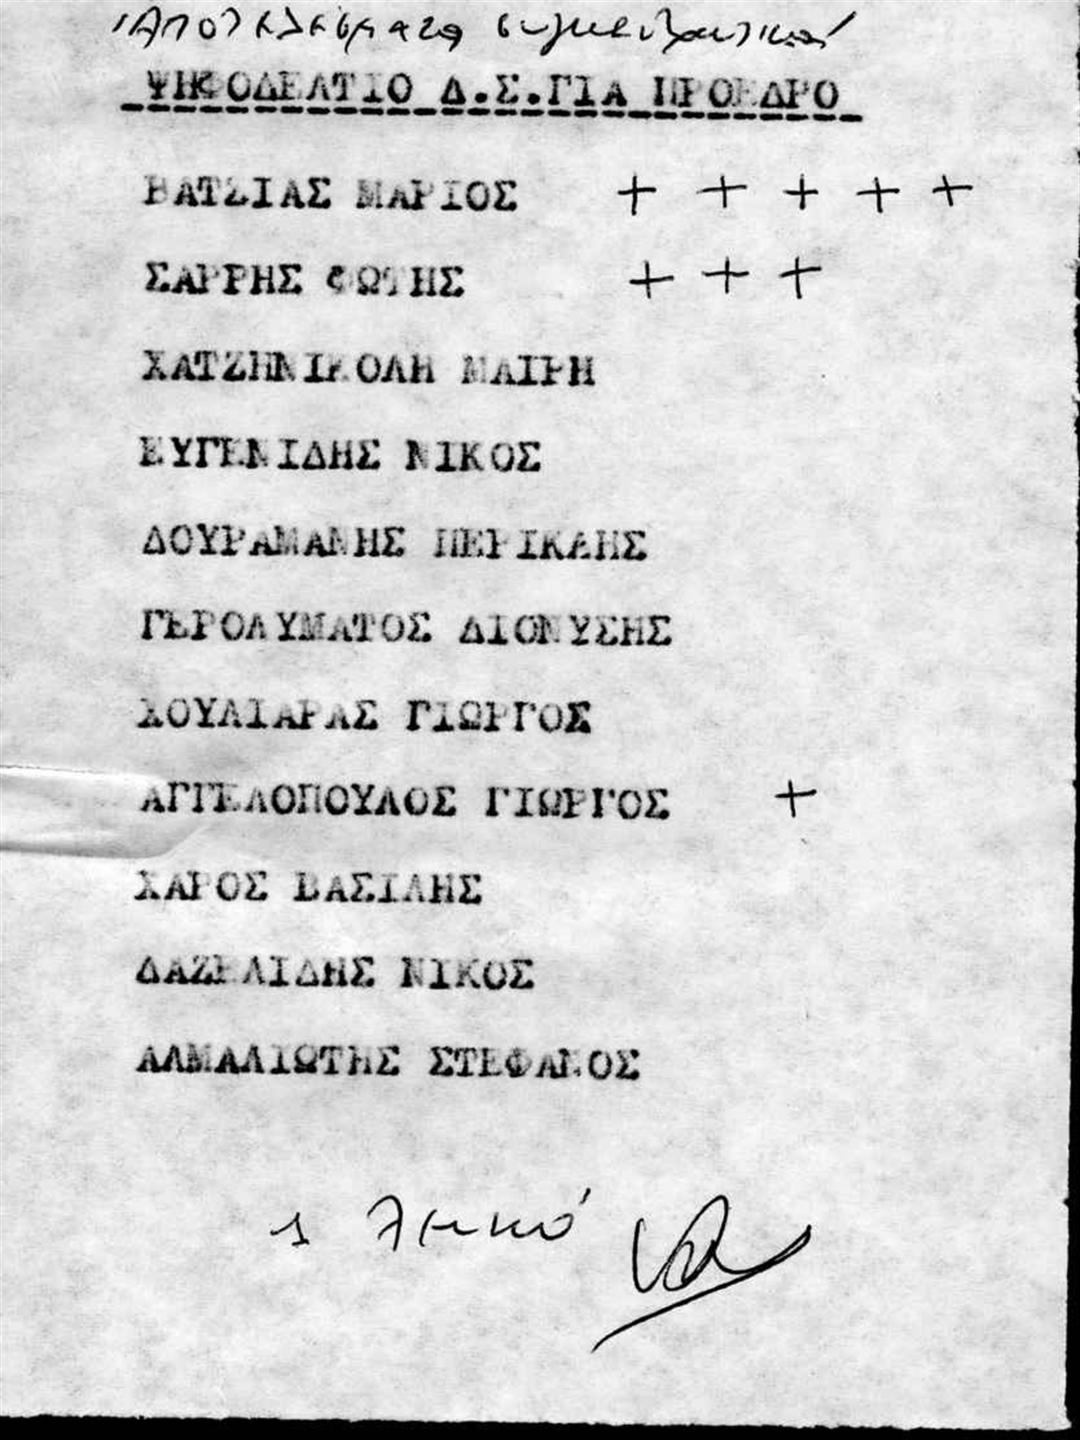 Αποτελέσματα συγκεντρωτικά
ΨΗΦΟΔΕΛΤΙΟ Δ.Σ.ΓΙΑ ΠΡΟΕΔΡΟ
ΒΑΤΣΙΑΣ ΜΑΡΙΟΣ + + + + +
ΣΑΡΡΗΣ ΦΩΤΗΣ + + +
ΧΑΤΖΗΝΙΚΟΛΗ ΜΑΙΡΗ
ΕΥΓΕΝΙΔΗΣ ΝΙΚΟΣ
ΔΟΥΡΑΜΑΝΗΣ ΠΕΡΙΚΛΗΣ
ΓΕΡΟΛΥΜΑΤΟΣ ΔΙΟΝΥΣΗΣ
ΧΟΥΛΙΑΡΑΣ ΓΙΩΡΓΟΣ
ΑΓΓΕΛΟΠΟΥΛΟΣ ΓΙΩΡΓΟΣ +
ΧΑΡΟΣ ΒΑΣΙΛΗΣ
ΔΑΖΕΛΙΔΗΣ ΝΙΚΟΣ
ΑΛΜΑΛΙΩΤΗΣ ΣΤΕΦΑΝΟΣ
1 λευκό